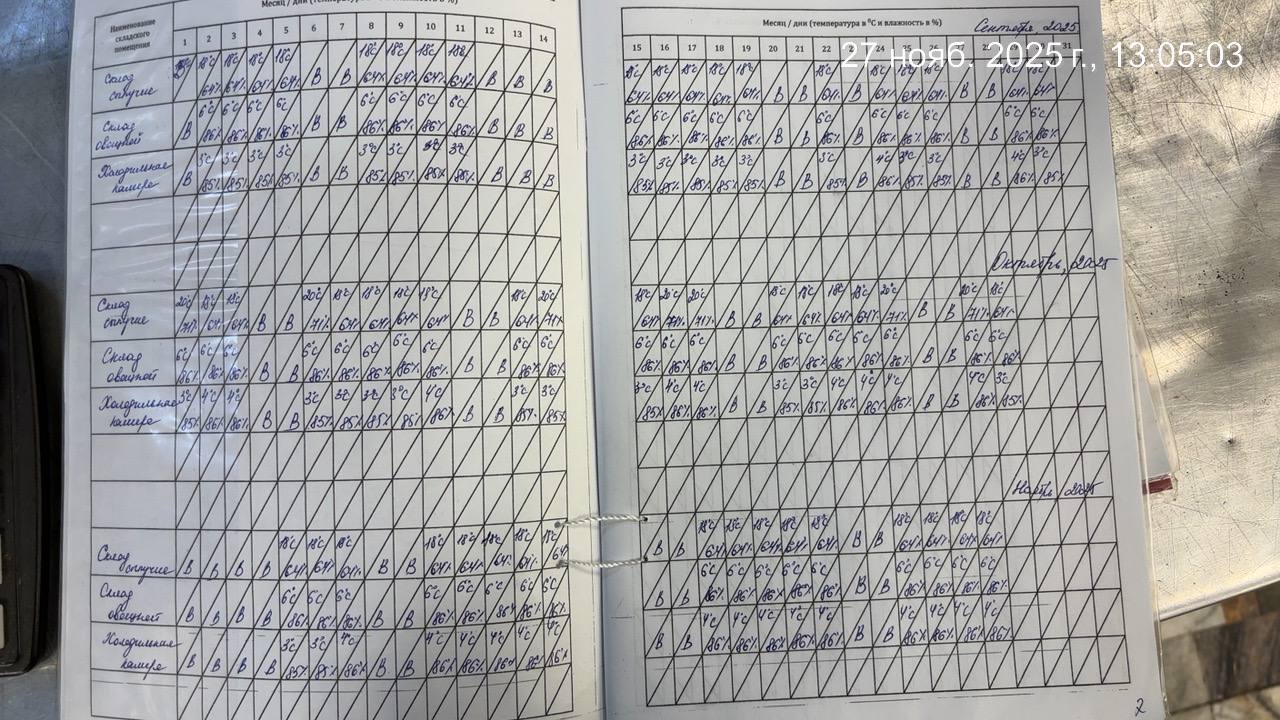 Месяц / дни (температура в ⁰С и влажность в %)
Наименование складского помещения
1 2 3 4 5 6 7 8 9 10 11 12 13 14
Склад сыпучие
18°С 18°С 18°С 18°С 18°С 18°С 18°С 18°С
64% 64% 64% 64% В В 64% 64% 64% 64% В В В
Склад овощной
6°С 6°С 6°С 6°С 6°С 6°С 6°С 6°С
В 86% 86% 86% 86% В В 86% 86% 86% 86% В В В
Холодильная камера
3°С 3°С 3°С 3°С 3°С 3°С 3°С 3°С
В 85% 85% 85% 85% В В 85% 85% 85% 85% В В В
Склад сыпучие
20°С 18°С 18°С 20°С 18°С 18°С 18°С 18°С 18°С 20°С
71% 64% 64% В В 71% 64% 64% 64% 64% В В 64% 71%
Склад овощной
6°С 6°С 6°С 6°С 6°С 6°С 6°С 6°С 6°С 6°С
86% 86% 86% В В 86% 86% 86% 86% 86% В В 86% 86%
Холодильная камера
3°С 4°С 4°С 3°С 3°С 3°С 3°С 4°С 3°С 3°С
85% 86% 86% В В 85% 85% 85% 85% 86% В В 85% 85%
Склад сыпучие
18°С 18°С 18°С 18°С 18°С 18°С 18°С 18°С
В В В В 64% 64% 64% В В 64% 64% 64% 64% 64
Склад овощной
6°С 6°С 6°С 6°С 6°С 6°С 6°С 6°С
В В В В 86% 86% 86% В В 86% 86% 86% 86% 86%
Холодильная камера
3°С 3°С 4°С 4°С 4°С 4°С 4°С 4°С
В В В В 85% 85% 86% В В 86% 86% 86% 86% 86%
Месяц / дни (температура в ⁰С и влажность в %)
Сентябрь 2025
27 нояб. 2025 г., 13:05:03
15 16 17 18 19 20 21 22 24 31
18°С 18°С 18°С 18°С 18°С 18°С 18°С 18°С
64% 64% 64% 64% 64% В В 64% В 64% 64% 64% В В 64% 64%
6°С 6°С 6°С 6°С 6°С 6°С 6°С 6°С 6°С 6°С 6°С
86% 86% 86% 86% 86% В В 86% В 86% 86% 86% В В 86% 86%
3°С 3°С 3°С 3°С 3°С 3°С 4°С 3°С 3°С 4°С 3°С
85% 85% 85% 85% 85% В В 85% В 86% 85% 85% В В 86% 85%
Октябрь, 2025
18°С 20°С 20°С 18°С 18°С 18°С 18°С 20°С 20°С 18°С
64% 71% 71% В В 64% 64% 64% 64% 71% В В 71% 64%
6°С 6°С 6°С 6°С 6°С 6°С 6°С 6°С 6°С 6°С
86% 86% 86% В В 86% 86% 86% 86% 86% В В 86% 86%
3°С 4°С 4°С 3°С 3°С 4°С 4°С 4°С 4°С 3°С
85% 86% 86% В В 85% 85% 86% 86% 86% В В 86% 85%
Ноябрь, 2025
18°С 18°С 18°С 18°С 18°С 18°С 18°С 18°С 18°С
В В 64% 64% 64% 64% 64% В В 64% 64% 64% 64%
6°С 6°С 6°С 6°С 6°С 6°С 6°С 6°С 6°С
В В 86% 86% 86% 86% 86% В В 86% 86% 86% 86%
4°С 4°С 4°С 4°С 4°С 4°С 4°С 4°С 4°С
В В 86% 86% 86% 86% 86% В В 86% 86% 86% 86%
2